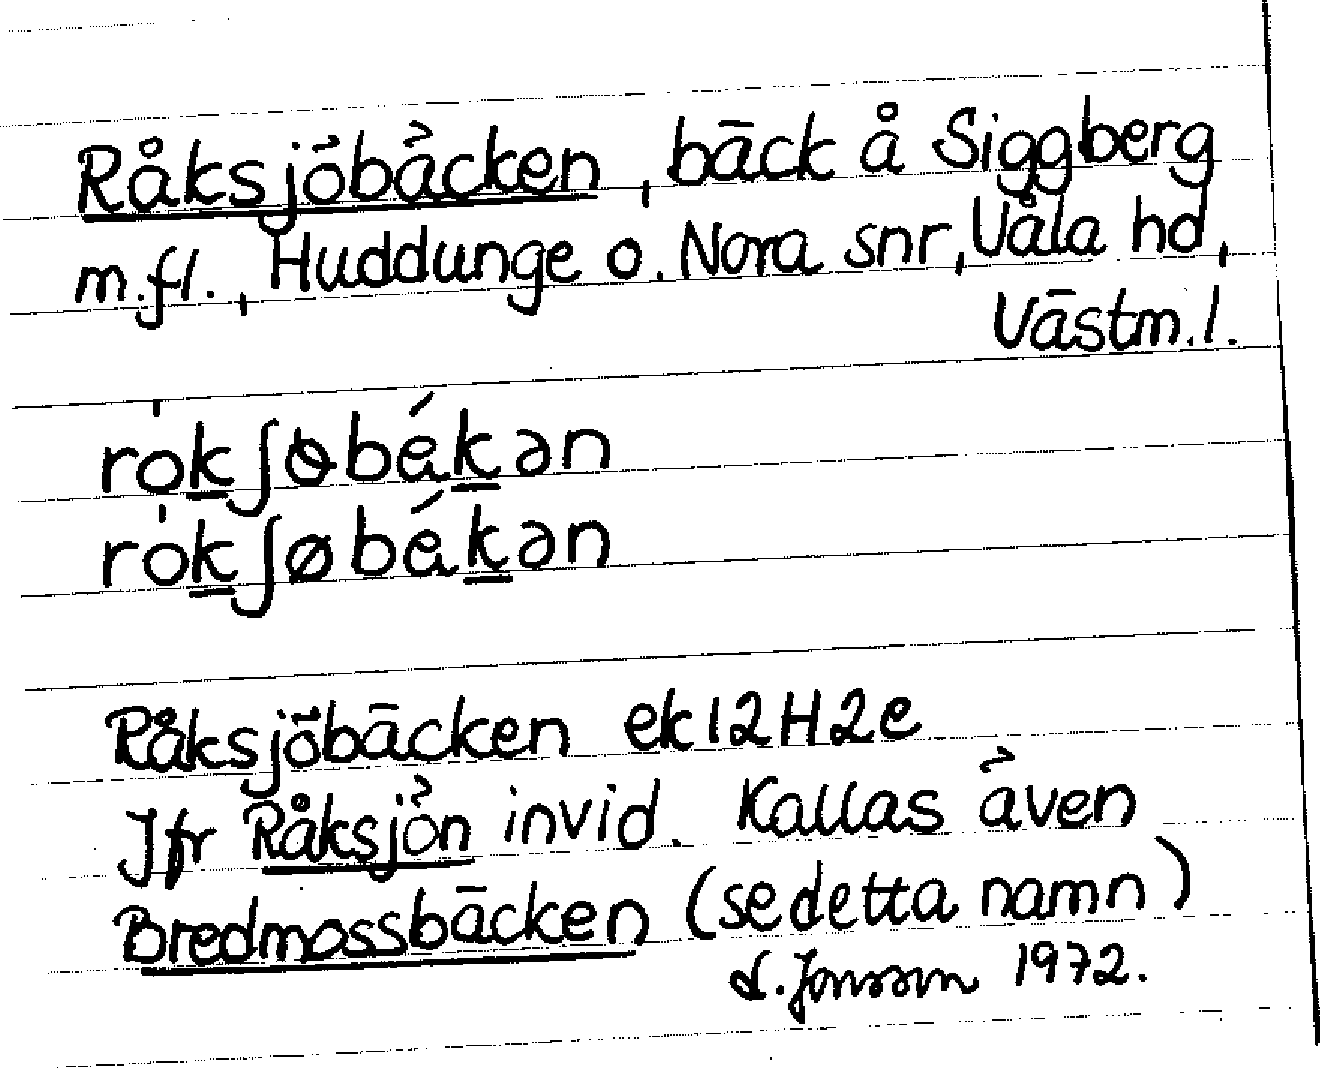 Råksjöbäcken, bäck å Siggberg
m.fl., Huddunge o. Nora snr, Våla hd,
Västm.l.
rȯkʃɵbǽkən
rȯkʃøbǽkən
Råksjöbäcken ek 12H2e
Jfr Råksjön invid. Kallas även
Bredmossbäcken (se detta namn)
Jonsson 1972.